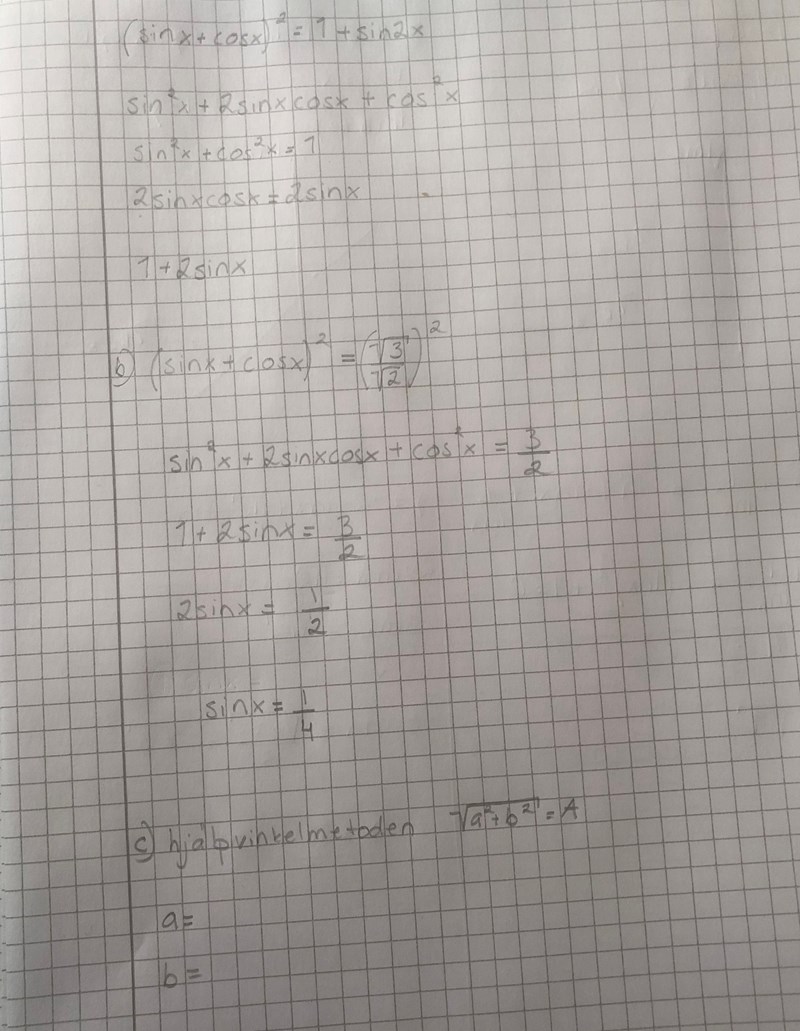 (sinx+cosx)² = 1+sin2x
sin²x + 2sinxcosx + cos²x
sin²x + cos²x = 1
2sinxcosx = 2sinx
1+2sinx
b) (sinx+cosx)² = (√3/√2)²
sin²x + 2sinxcosx + cos²x = 3/2
1+2sinx = 3/2
2sinx = 1/2
sinx = 1/4
c) hjälpvinkelmetoden √a²+b² = A
a=
b=